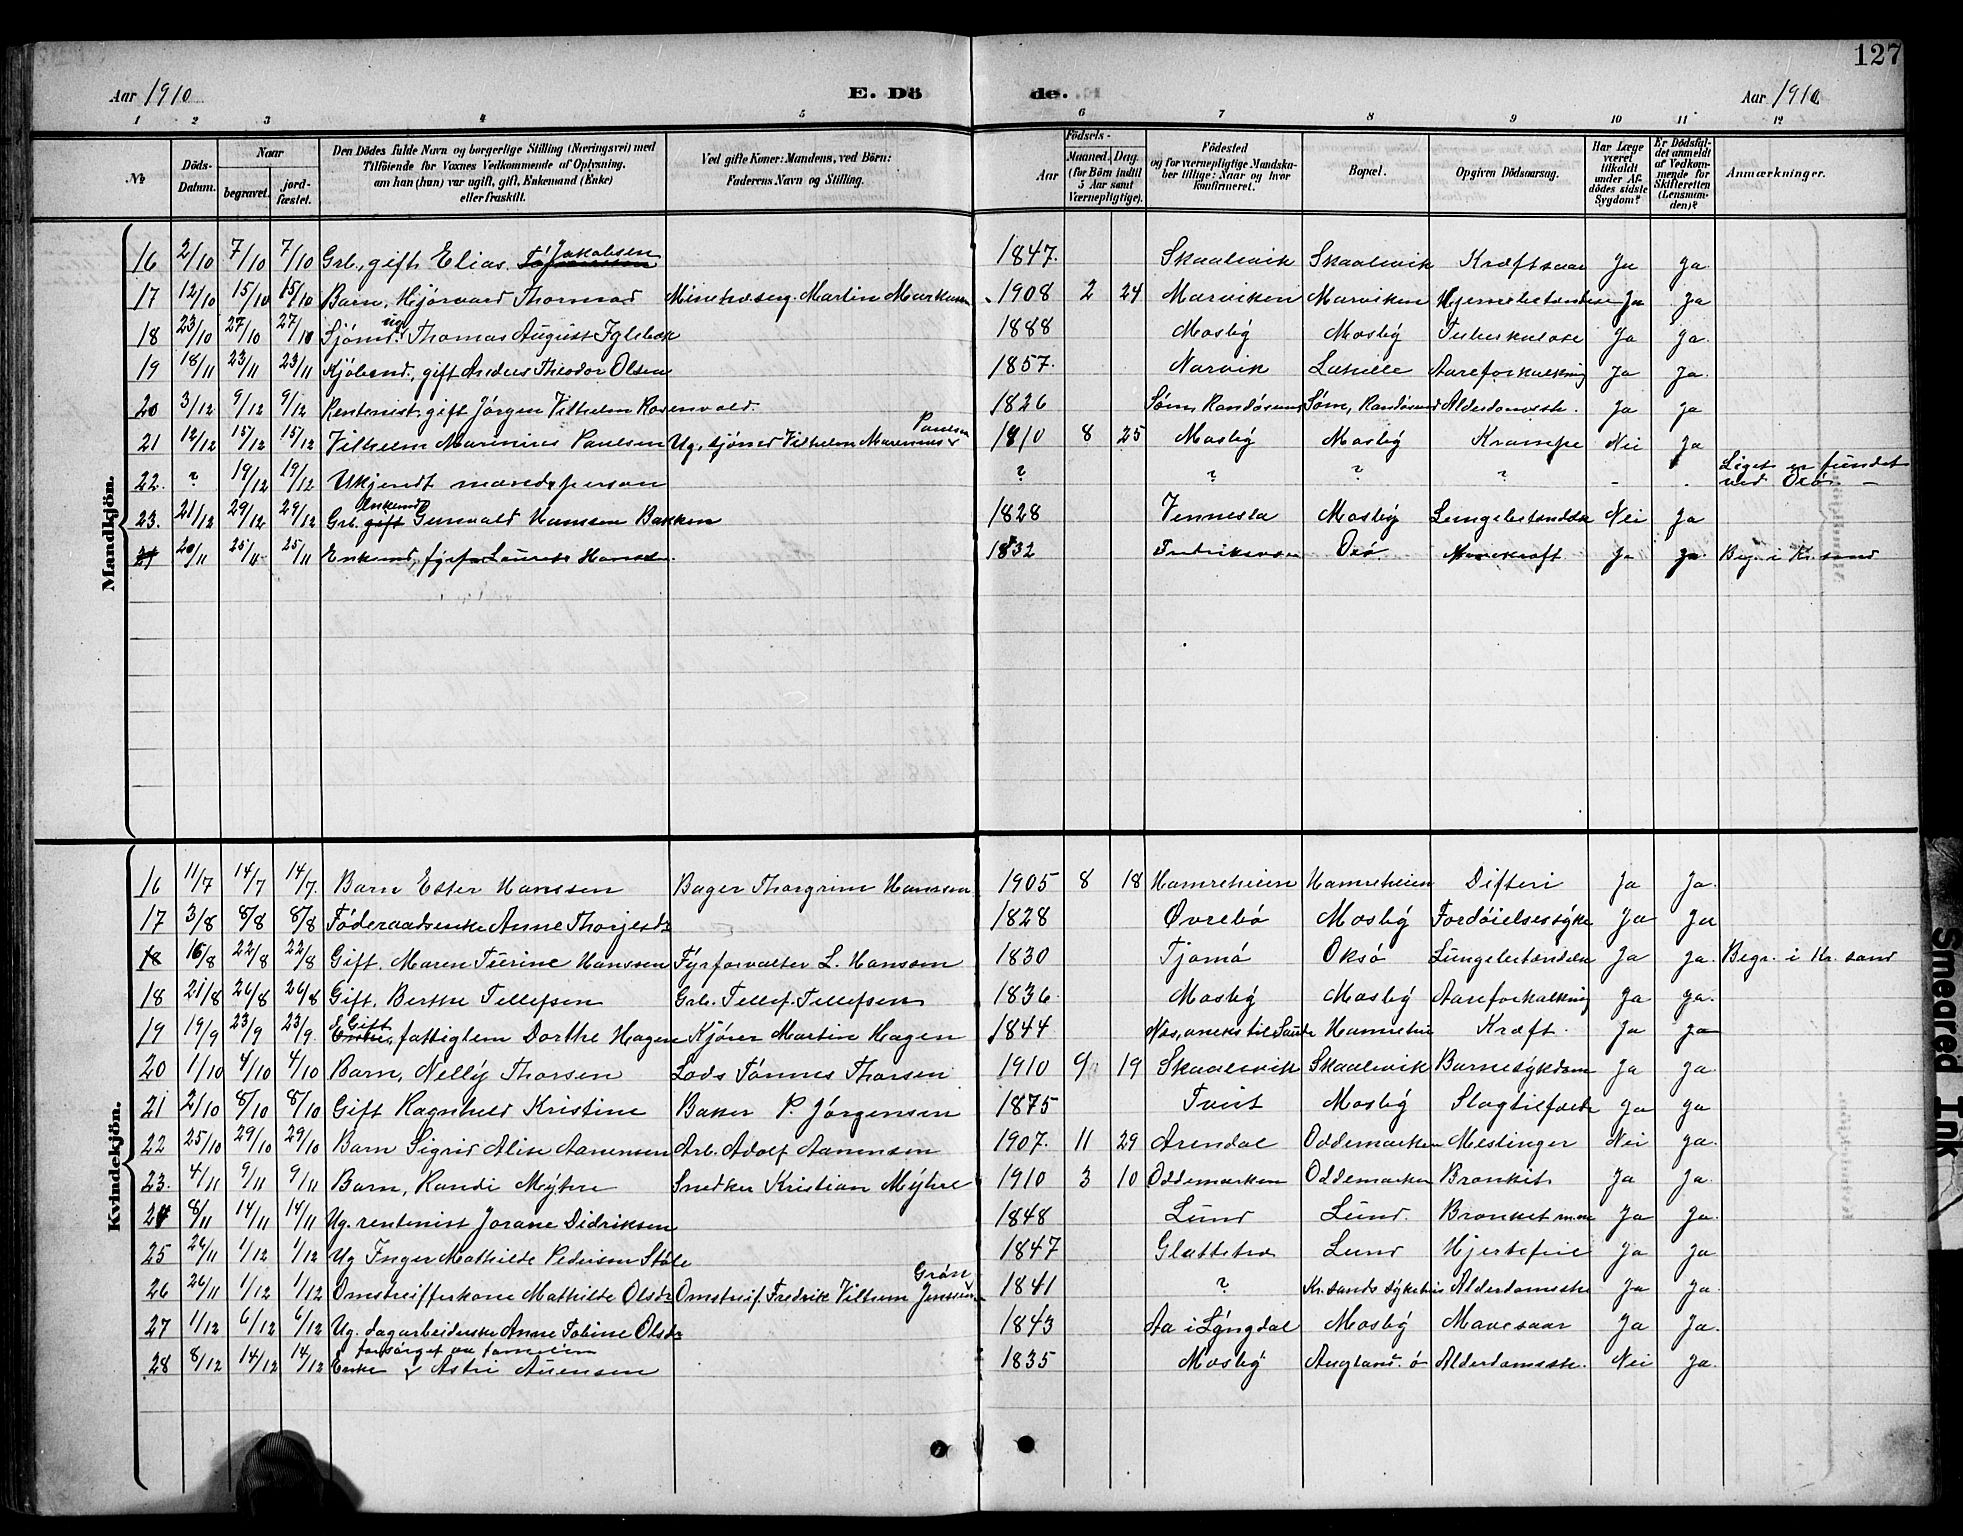 127
Aar 1910
E. Dö
de.
Aar 1910
1 2 3 4 5 6 7 8 9 10 11 12
№
Döds-Datum.
Naar
begravet.
jord-fæstet.
Den Dödes fulde Navn og borgerlige Stilling (Næringsvei) med
Tilföiende for Voxnes Vedkommende af Oplysning,
om han (hun) var ugift, gift, Enkemand (Enke)
eller fraskilt.
Ved gifte Koner: Mandens, ved Börn:
Faderens Navn og Stilling.
Födsels-
Aar
Maaned. Dag.
(for Börn indtil
5 Aar samt
Værnepligtige).
Födested
og for værnepligtige Mandska-
ber tillige: Naar og hvor
konfirmeret.
Bopæl.
Opgiven Dödsaarsag.
Har Læge
været
tilkaldt
under Af-
dödes sidste
Sygdom?
Er Dödsfal-
det anmeldt
af Vedkom-
mende for
Skifteretten
(Lensman-
den)?
Anmærkninger.
Mandkjön.
16 2/10 7/10 7/10 Grb., gift Elias Jakobsen 1847. Skaalevik Skaalevik Kræftsaar Ja Ja
17 12/10 15/10 15/10 Barn, Hjörvard Thormod Martin Markussen 1908 2 24 Marviken Marviken Hjernebetændelse Ja Ja
18 23/10 27/10 27/10 Sjömd. ug. Thomas August Iglebæk 1888 Mosby Mosby Tuberkulose Ja Ja.
19 18/11 23/11 23/11 Kjöbmd., gift Anders Theodor Olsen 1857. Narvik Aareforkalkning Ja Ja.
20 3/12 9/12 9/12 Rentenist, gift Jörgen Vilhelm Rosenvold. 1826 Söm, Randösund Söm, Randösund Alderdomssv. Ja Ja
21 12/12 15/12 15/12 Vilhelm Marinius Paulsen Ug. sjömd Vilhelm Marinius Paulsen 1910 8 25 Mosby Mosby Krampe Nei Ja
22. ? 19/12 19/12 Ukjendt mandsperson ? ? ? ? - . Liget er fundet
ved Oxö -
23. 21/12 29/12 29/12 Grb. Enkemd Gunvald Hanssen Bakken 1828 Vennesla Mosby Lungebetændelse Nei Ja
24 20/11 25/11 25/11 Enkemd, fyrfor Laurets Hanssen. 1832 Fredriksværn Oxö Mavekræft Ja Ja Beg. i Kr.sand
Kvindekjön.
16 11/7 14/7 14/7. Barn Ester Hanssen Bager Thorgrim Hanssen 1905 8 18 Hamreheien Hamreheien Difteri Ja Ja.
17 3/8 8/8 8/8 Föderaadsenke Anne Thorjesdr 1828 Øvrebö Mosby Fordöielsessyke Ja Ja
18 16/8 22/8 22/8 Gift. Maren Turine Hanssen Fyrforvalter L. Hanssen 1830 Tjömö Oksö Lungebetændelse Ja Ja. Begr. i Kr.sand
18 21/8 26/8 26/8 Gift, Berthe Tellefsen Grb. Tellef Tellefsen 1836. Mosby Mosby Aareforkalkning Ja Ja.
19 19/9 23/9 23/9. Gift, fattiglem Dorthe Hagen Kjörer Martin Hagen 1844 Næs, aneks til Hamrehei Kræft. Ja Ja
20 1/10 4/10 4/10 Barn, Nelly Thorsen Lods Tönnes Thorsen 1910 9 19 Skaalevik Skaalevik Barnesykdom Ja Ja
21 2/10 8/10 8/10 Gift Ragnhild Kristine Baker P. Jörgensen 1875 Tveit Mosby Slagtilfælde Ja Ja
22 25/10 29/10 29/10 Barn Sigrid Alise Aanensen Arb. Adolf Aanensen 1907. 11 29 Arendal Oddemarken Meslinger Nei Ja.
23. 4/11 9/11 9/11 Barn, Randi Myhre Snedker Kristian Myhre 1910 3 10 Oddemarken Oddemarken Bronkit Ja Ja.
24 8/11 14/11 14/11 Ug. rentenist Jorane Didriksen 1848 Lund Lund. Bronkit m.m. Ja Ja.
25 26/11 1/12 1/12 Ug Inger Mathilde Pedersen Stöle 1847 Glattetræ Lund Hjertefeil Ja Ja
26 26/11 1/12 1/12 Omstreifferkone Mathilde Olsdr Omstreif. Fredrik Vilhem Grön Jenssen 1841 ? Kr.sands sykehus Alderdomssv. Ja Ja.
27 1/12 6/12 6/12 Ug. dagarbeiderske Anne Tobine Olsdr 1843 Aa i Lyngdal Mosby Mavesaar Ja Ja.
28 8/12 14/12 14/12 Enke forsörget av familien Astri Auensen 1835 Mosby Augland ö Alderdomssv. Nei Ja.
Smeared Ink